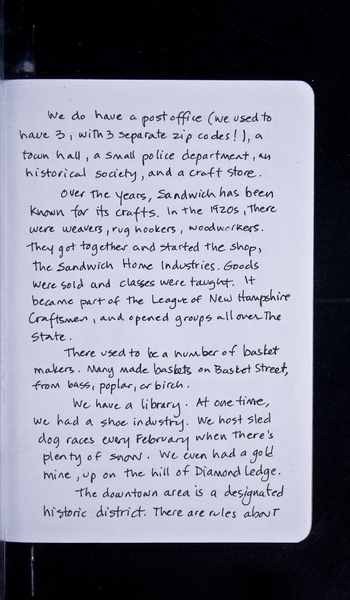 We do have a post office (we used to
have 3, with 3 separate zip codes!), a
town hall, a small police department, an
historical society, and a craft store.
Over the years, Sandwich has been
known for its crafts. In the 1920s, there
were weavers, rug hookers, woodworkers.
They got together and started the shop,
the Sandwich Home Industries. Goods
were sold and classes were taught. It
became part of the League of New Hampshire
Craftsmen, and opened groups all over the
State.
There used to be a number of basket
makers. Many made baskets on Basket Street,
from bass, poplar, or birch.
We have a library. At one time,
we had a shoe industry. We host sled
dog races every February when there's
plenty of snow. We even had a gold
mine, up on the hill of Diamond Ledge.
The downtown area is a designated
historic district. There are rules about